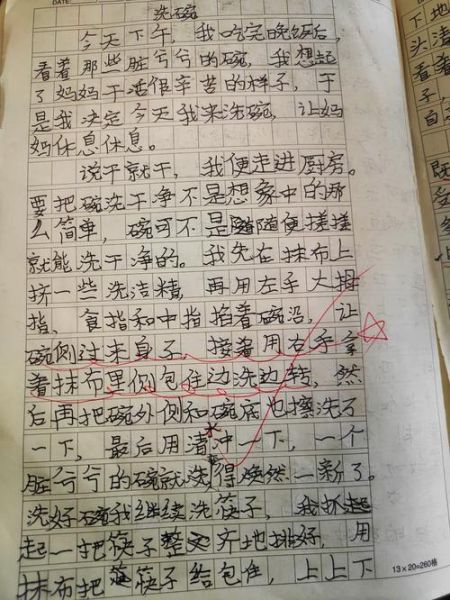 DATE:
洗碗
今天下午，我吃完晚饭后，
看着那些脏兮兮的碗，我想起
了妈妈干活很辛苦的样子，于
是我决定今天我来洗碗，让妈
妈休息休息。
说干就干，我便走进厨房。
要把碗洗干净不是想象中的那
么简单，碗可不是随随便搓搓
就能洗干净的。我先在抹布上
挤一些洗洁精，再用左手大拇
指、食指和中指掐着碗沿，让
碗侧过来身子，接着用右手拿
着抹布里侧包住边洗边转，然
后再把碗外侧和碗底也擦洗了
一下，最后用清水冲一下，一个
脏兮兮的碗就洗得焕然一新了。
洗好碗我继续洗筷子，我抓起
起一把筷子整齐地排好，用
抹布把筷子给包住，上上下
13×20=260格
下地
头清
看着
子，
自
既
受
上